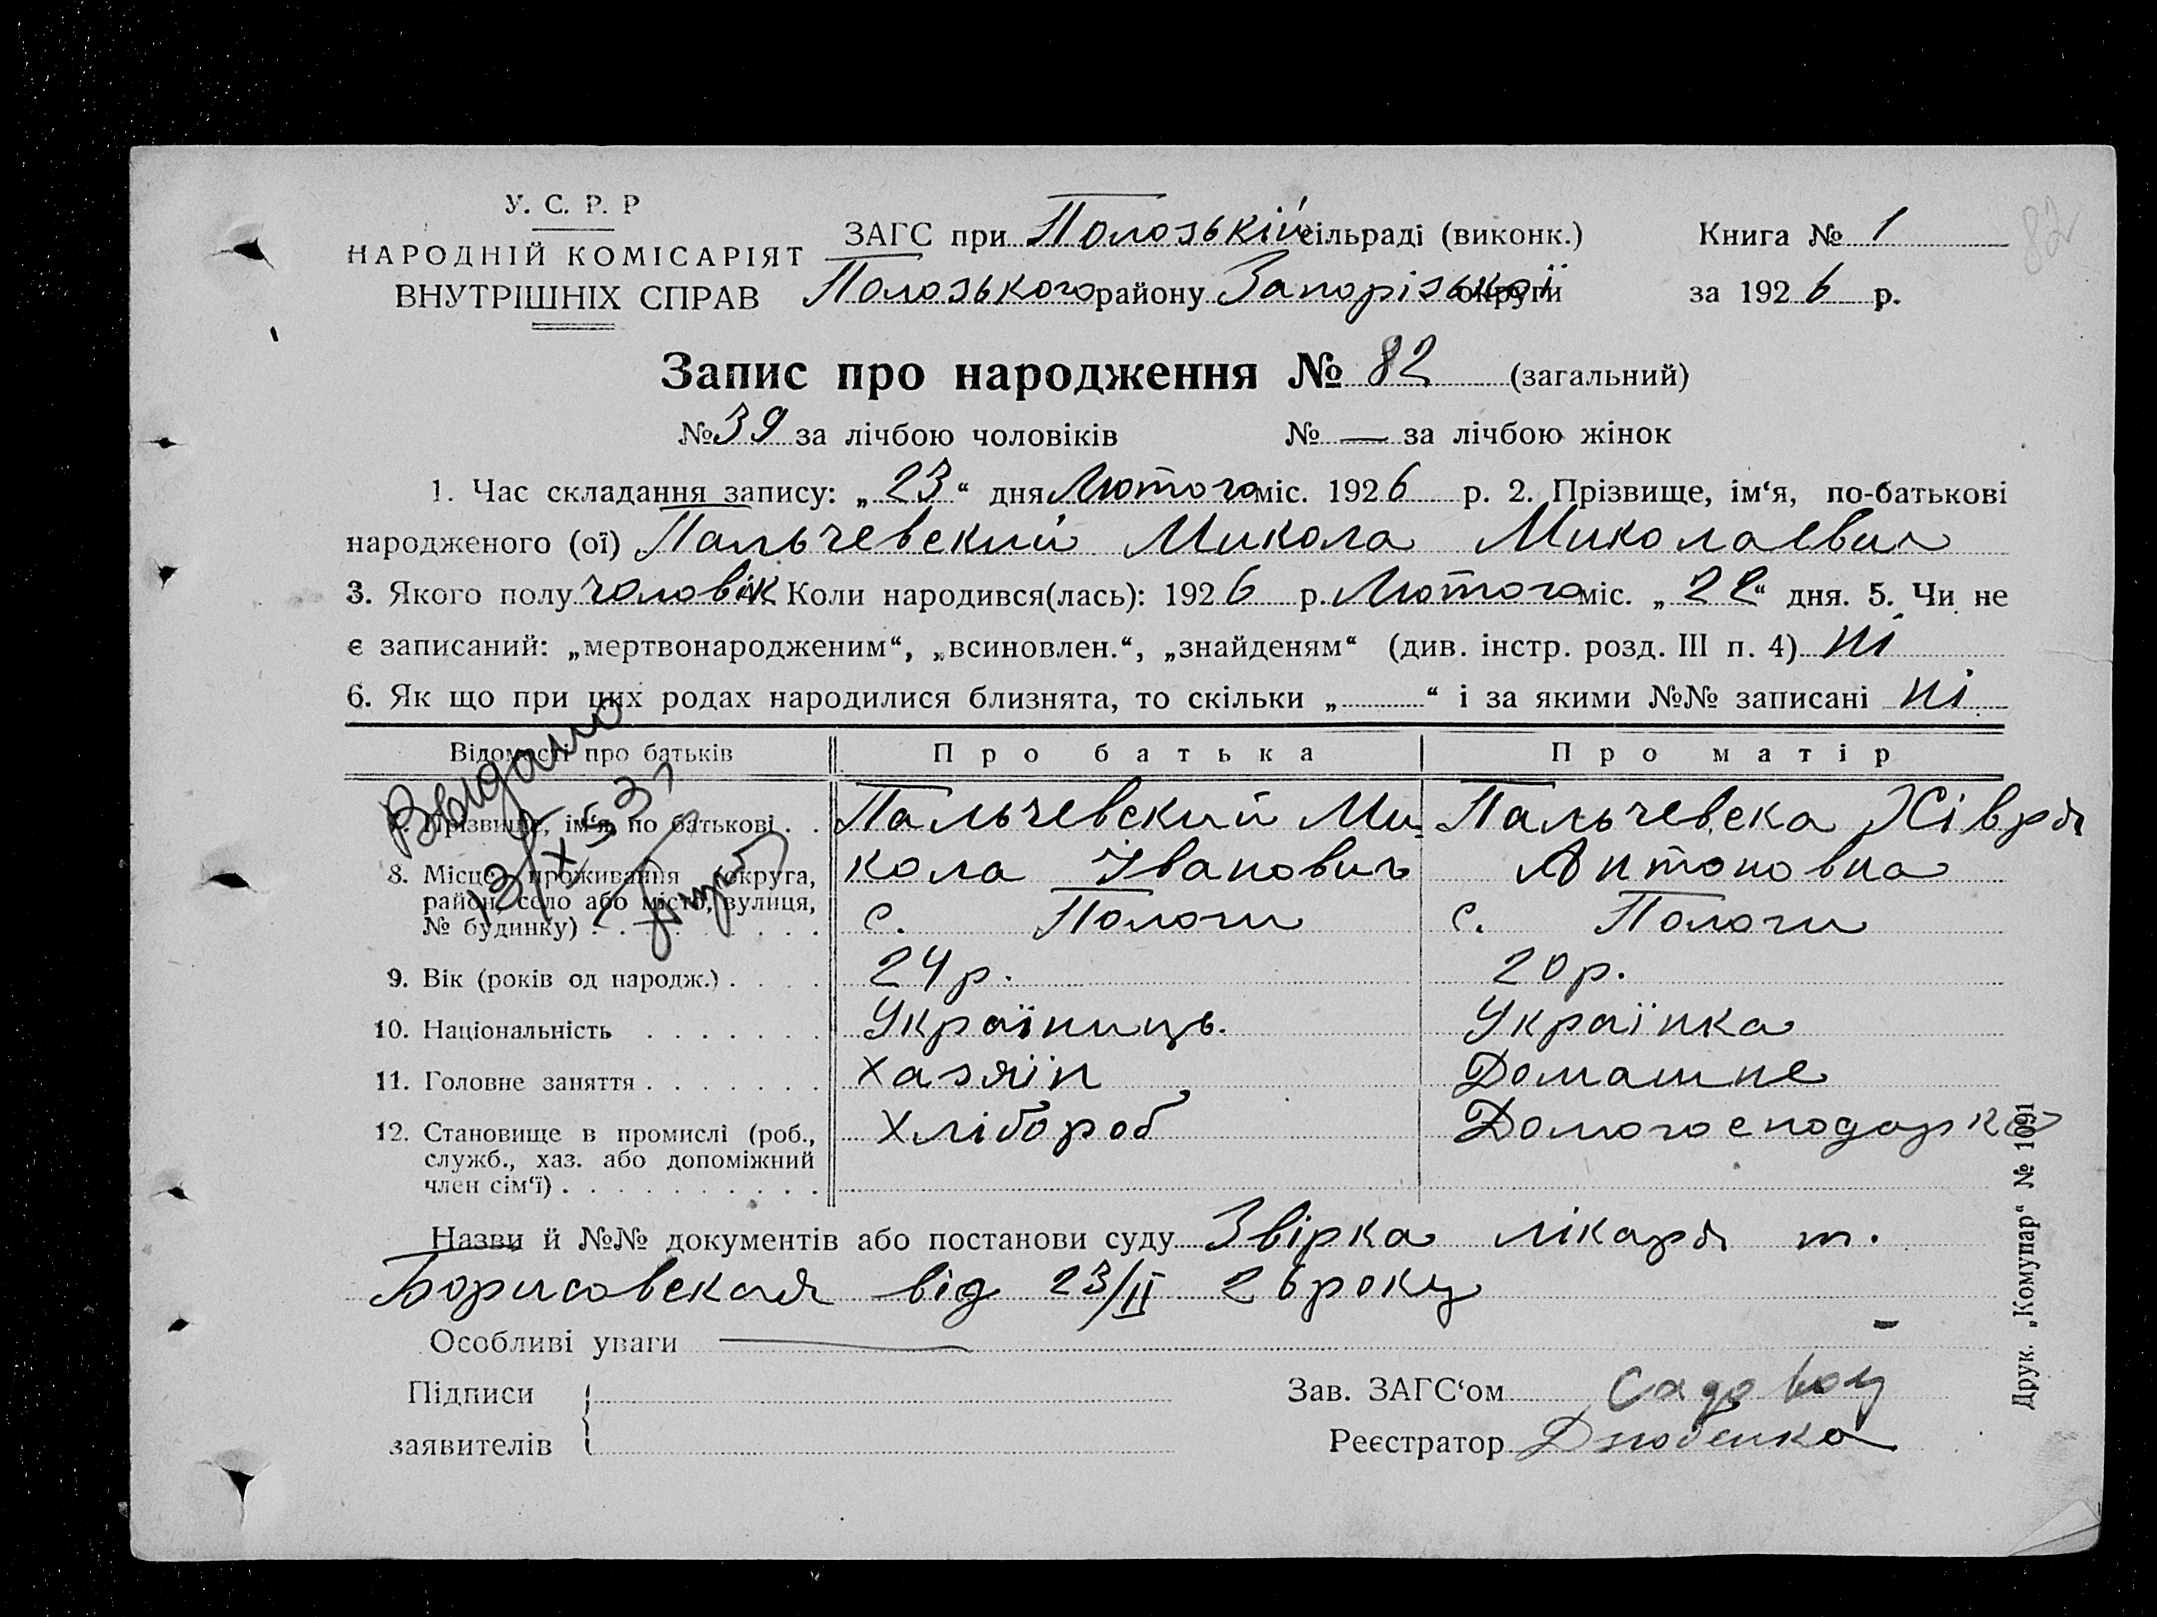 У. С. Р. Р
НАРОДНІЙ КОМІСАРІЯТ
ВНУТРІШНІХ СПРАВ
ЗАГС при Полозькій сільраді (виконк.)
Полозького району Запорізької округи
Книга № 1
за 1926 р.
82
Запис про народження № 82 (загальний)
№ 39 за лічбою чоловіків № — за лічбою жінок
1. Час складання запису: „23“ дня Лютого міс. 1926 р. 2. Прізвище, ім‘я, по-батькові
народженого (ої) Пальчевский Микола Миколаевич
3. Якого полу чоловік Коли народився(лась): 1926 р. Лютого міс. „22“ дня. 5. Чи не
є записаний: „мертвонародженим“, „всиновлен.“, „знайденям“ (див. інстр. розд. III п. 4) ні
6. Як що при цих родах народилися близнята, то скільки „ “ і за якими №№ записані ні
Відомості про батьків Про батька Про матір
Выдано
7. Прізвище, ім‘я, по батькові . . Пальчевский Ми- Пальчевска Хівря
8. Місце проживання (округа, кола Іванович Антоновна
район, село або місто, вулиця, с. Пологи с. Пологи
№ будинку) . . . . . . . . .
9. Вік (років од народж.) . . . . 24 р. 20 р.
10. Національність . . . . . . . Україниць. Українка
11. Головне заняття . . . . . . . Хазяїн Домашне
12. Становище в промислі (роб., Хлібороб Домогосподарка
служб., хаз. або допоміжний
член сім‘ї) . . . . . . . . . .
Назви й №№ документів або постанови суду Звірка лікаря т.
Борисовская від 23/II 26 року
Особливі уваги —
Підписи
заявителів
Зав. ЗАГС‘ом Садовой
Реєстратор Дзюбенко
Друк. „Комунар“ № 1091